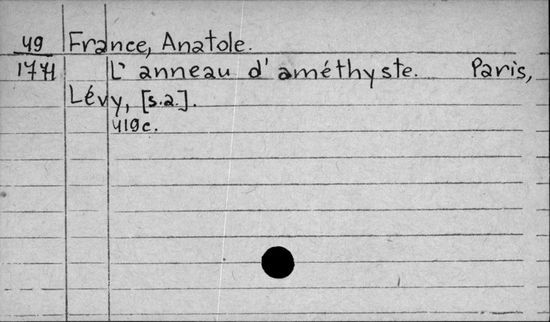 49 France, Anatole.
1771 L' anneau d' améthyste. Paris,
Lévy, [s.a.].
419c.